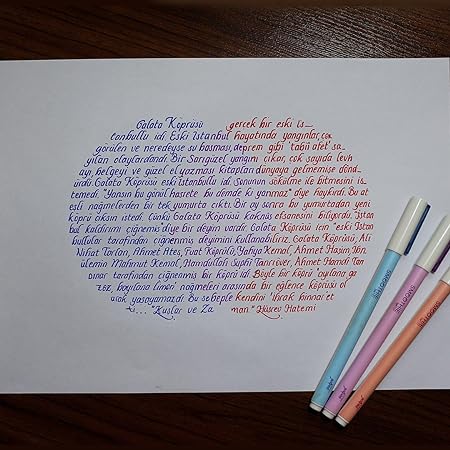 Galata Köprüsü gerçek bir eski İs_
tanbullu idi. Eski İstanbul hayatında yangınlar, çok
görülen ve neredeyse su basması, deprem gibi "tabii afet" sa_
yılan olaylardandı. Bir Sarıgüzel yangını çıkar, çok sayıda levh
ayı, belgeyi ve güzel el yazması kitapları dünyaya gelmemişe dönd_
ürdü. Galata Köprüsü eski İstanbullu idi. Sonunun sökülme ile bitmesini is_
temedi. "Yansın bu gönül hasrete bu demde ki yanmaz" diye haykırdı. Bu at
eşli nağmelerden bir tek yumurta çıktı. Bir ay sonra bu yumurtadan yeni
köprü çıksın istedi. Çünkü Galata Köprüsü kaknüs efsanesini biliyordu. "İstan
bul kaldırımı çiğnemiş" diye bir deyim vardır. Galata Köprüsü için "eski İstan
bullular tarafından çiğnenmiş" deyimini kullanabiliriz. Galata Köprüsü, Ali
Nihat Tarlan, Ahmet Ateş, Fuat Köprülü, Yahya Kemal, Ahmet Haşim, İbn
ülemin Mahmut Kemal, Hamdullah Suphi Tanrıöver, Ahmet Hamdi Tan
pınar tarafından çiğnenen bir köprü idi. Böyle bir köprü "aylana ga
zöz, bayılana limon" nağmeleri arasında bir eğlence köprüsü ol
arak yaşayamazdı. Bu sebeple kendini ihrak binnar et
ti... "Kuşlar ve Za man" Hüsrev Hatemi